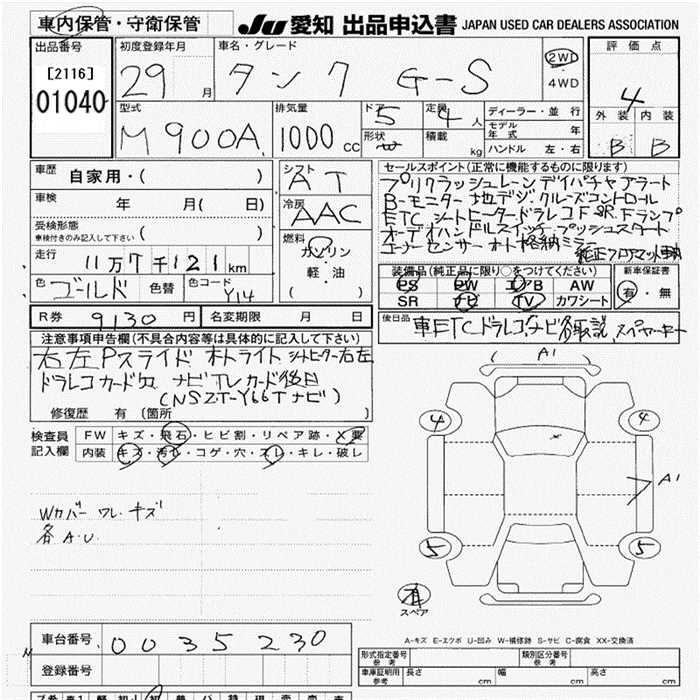 車内保管・守衛保管
JU 愛知 出品申込書 JAPAN USED CAR DEALERS ASSOCIATION
出品番号
[2116]
01040
初度登録年月
29 月
車名・グレード
タンク G-S
2WD
4WD
評価点
4
外装 内装
B B
型式
M900A
排気量
1000 cc
ドア
5
形状
定員
4 人
積載
kg
ディーラー・並行
モデル年式 年
ハンドル 左・右
車歴
自家用・( )
車検
年 月( 日)
受検形態
車検付きのみ記入して下さい ( )
走行
11万7千121km
色
ゴールド
色替
色コード
Y14
シフト
AT
冷房
AAC
燃料
ガソリン
軽・油
( )
セールスポイント(正常に機能するものに限ります)
プリクラッシュ レーンデイパチャアラート
Bモニター 地デジ クルーズコントロール
ETC シートヒーター ドラレコF SR.Fランプ
オーデオハンドルスイッチ プッシュスタート
コーナーセンサー オート格納ミラー
純正フロアマット
装備品(純正品に限り○をつけてください)
PS PW エアB AW
SR ナビ TV カワシート
新車保証書
有・無
R券 9130 円
名変期限 月 日
後日品
車ETCドラレコ ナビ 取説 スペヤーキー
注意事項申告欄(不具合内容等は具体的に記入して下さい)
右左Pスライド オートライト シートヒーター右左
ドラレコカード欠 ナビTVカード後日
(NSZT-Y66T ナビ)
修復歴 有 〔箇所 〕
検査員
記入欄
FW キズ・飛石・ヒビ割・リペア跡・X要
内装 キズ・汚レ・コゲ・穴・スレ・キレ・破レ
Wカバー ワレ・キズ
各A.U
A1
4 4
A1
5 5
有
スペア
A-キズ E-エクボ U-凹み W-補修跡 S-サビ C-腐食 XX-交換済
車台番号
0035230
登録番号
形式指定番号
参考
類別区分番号
参考
車庫証明用
参考
長さ cm 幅 cm 高さ cm